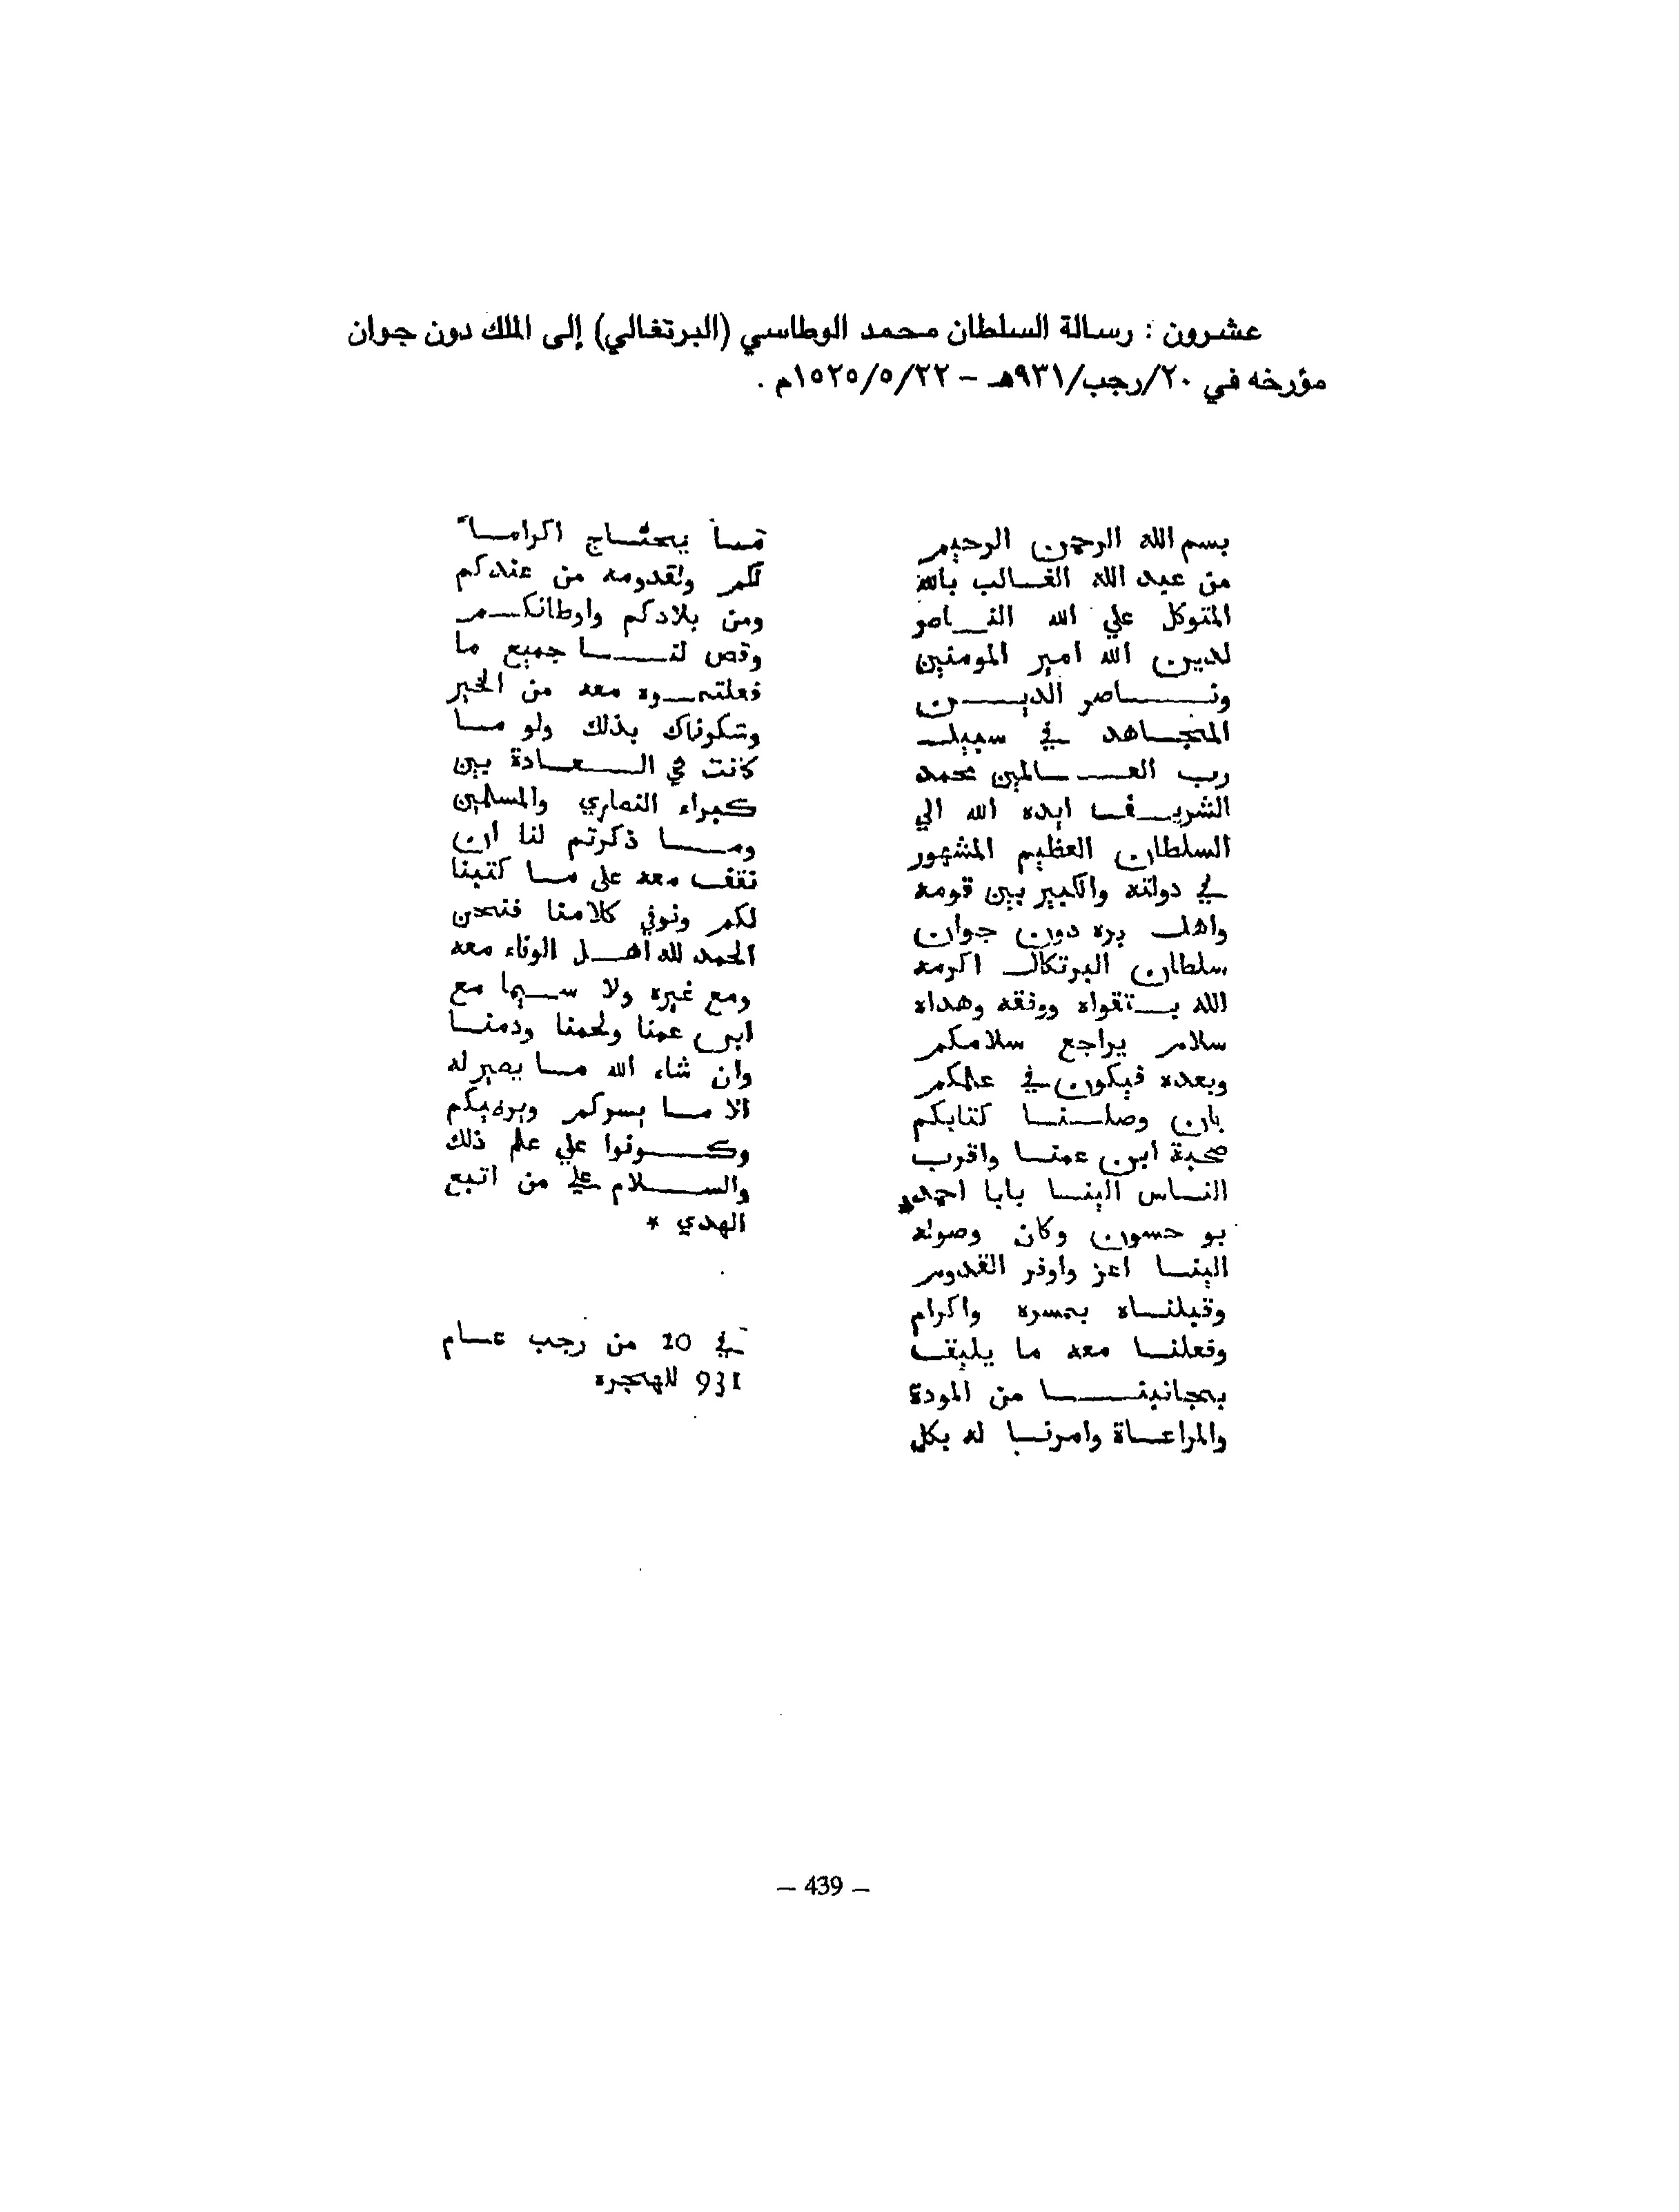 عشرون : رسالة السلطان محمد الوطاسي (البرتغالي) إلى الملك دون جوان
مؤرخه في ٢٠/رجب/٩٣١هـ – ١٥٢٥/٥/٢٢م .
بسم الله الرحمن الرحيم
من عبد الله الغالب بالله
المتوكل علي الله الناصر
لدين الله امير المومنين
وناصر الدين
المجاهد في سبيل
رب العالمين محمد
الشريف ايده الله الي
السلطان العظيم المشهور
في دولته والكبير بين قومه
واهل بره دون جوان
سلطان البرتكال اكرمه
الله بتقواه ووفقه وهداه
سلام يراجع سلامكم
وبعده فيكون في علمكم
بان وصلنا كتابكم
صحبة ابن عمنا واقرب
الناس الينا بابا احمد*
بو حسون وكان وصوله
الينا اعز واوفر القدوم
وقبلناه بمسره واكرام
وفعلنا معه ما يليق
بجانبنا من المودة
والمراعاة وامرنا له بكل
مما يحتاج اكراما
لكم ولقدومه من عندكم
ومن بلادكم واوطانكم
وقص لنا جميع ما
فعلتموه معه من الخير
وشكرناك بذلك ولو ما
كانت في العادة بين
كبراء النصاري والمسلمين
وما ذكرتم لنا ان
نقف معه على ما كتبنا
لكم ونوفي كلامنا فنحن
الحمد لله اهل الوفاء معه
ومع غيره ولا سيما مع
ابن عمنا ولحمنا ودمنا
وان شاء الله ما يصير له
الا ما يسركم ويرضيكم
وكونوا علي علم ذلك
والسلام علي من اتبع
الهدي *
في 20 من رجب عام
931 للهجره
– 439 –